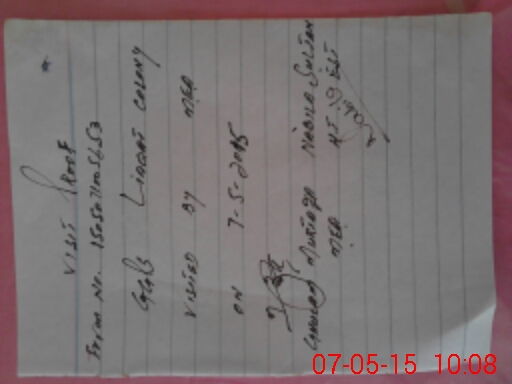 VISIT PROOF
Form No. 15050711005653
GGPS Liaqat Colony
VISITED BY MEA
ON 7-5-2015
Ghulam Murtaza Nabila Sultan
MEA HT
07-05-15 10:08